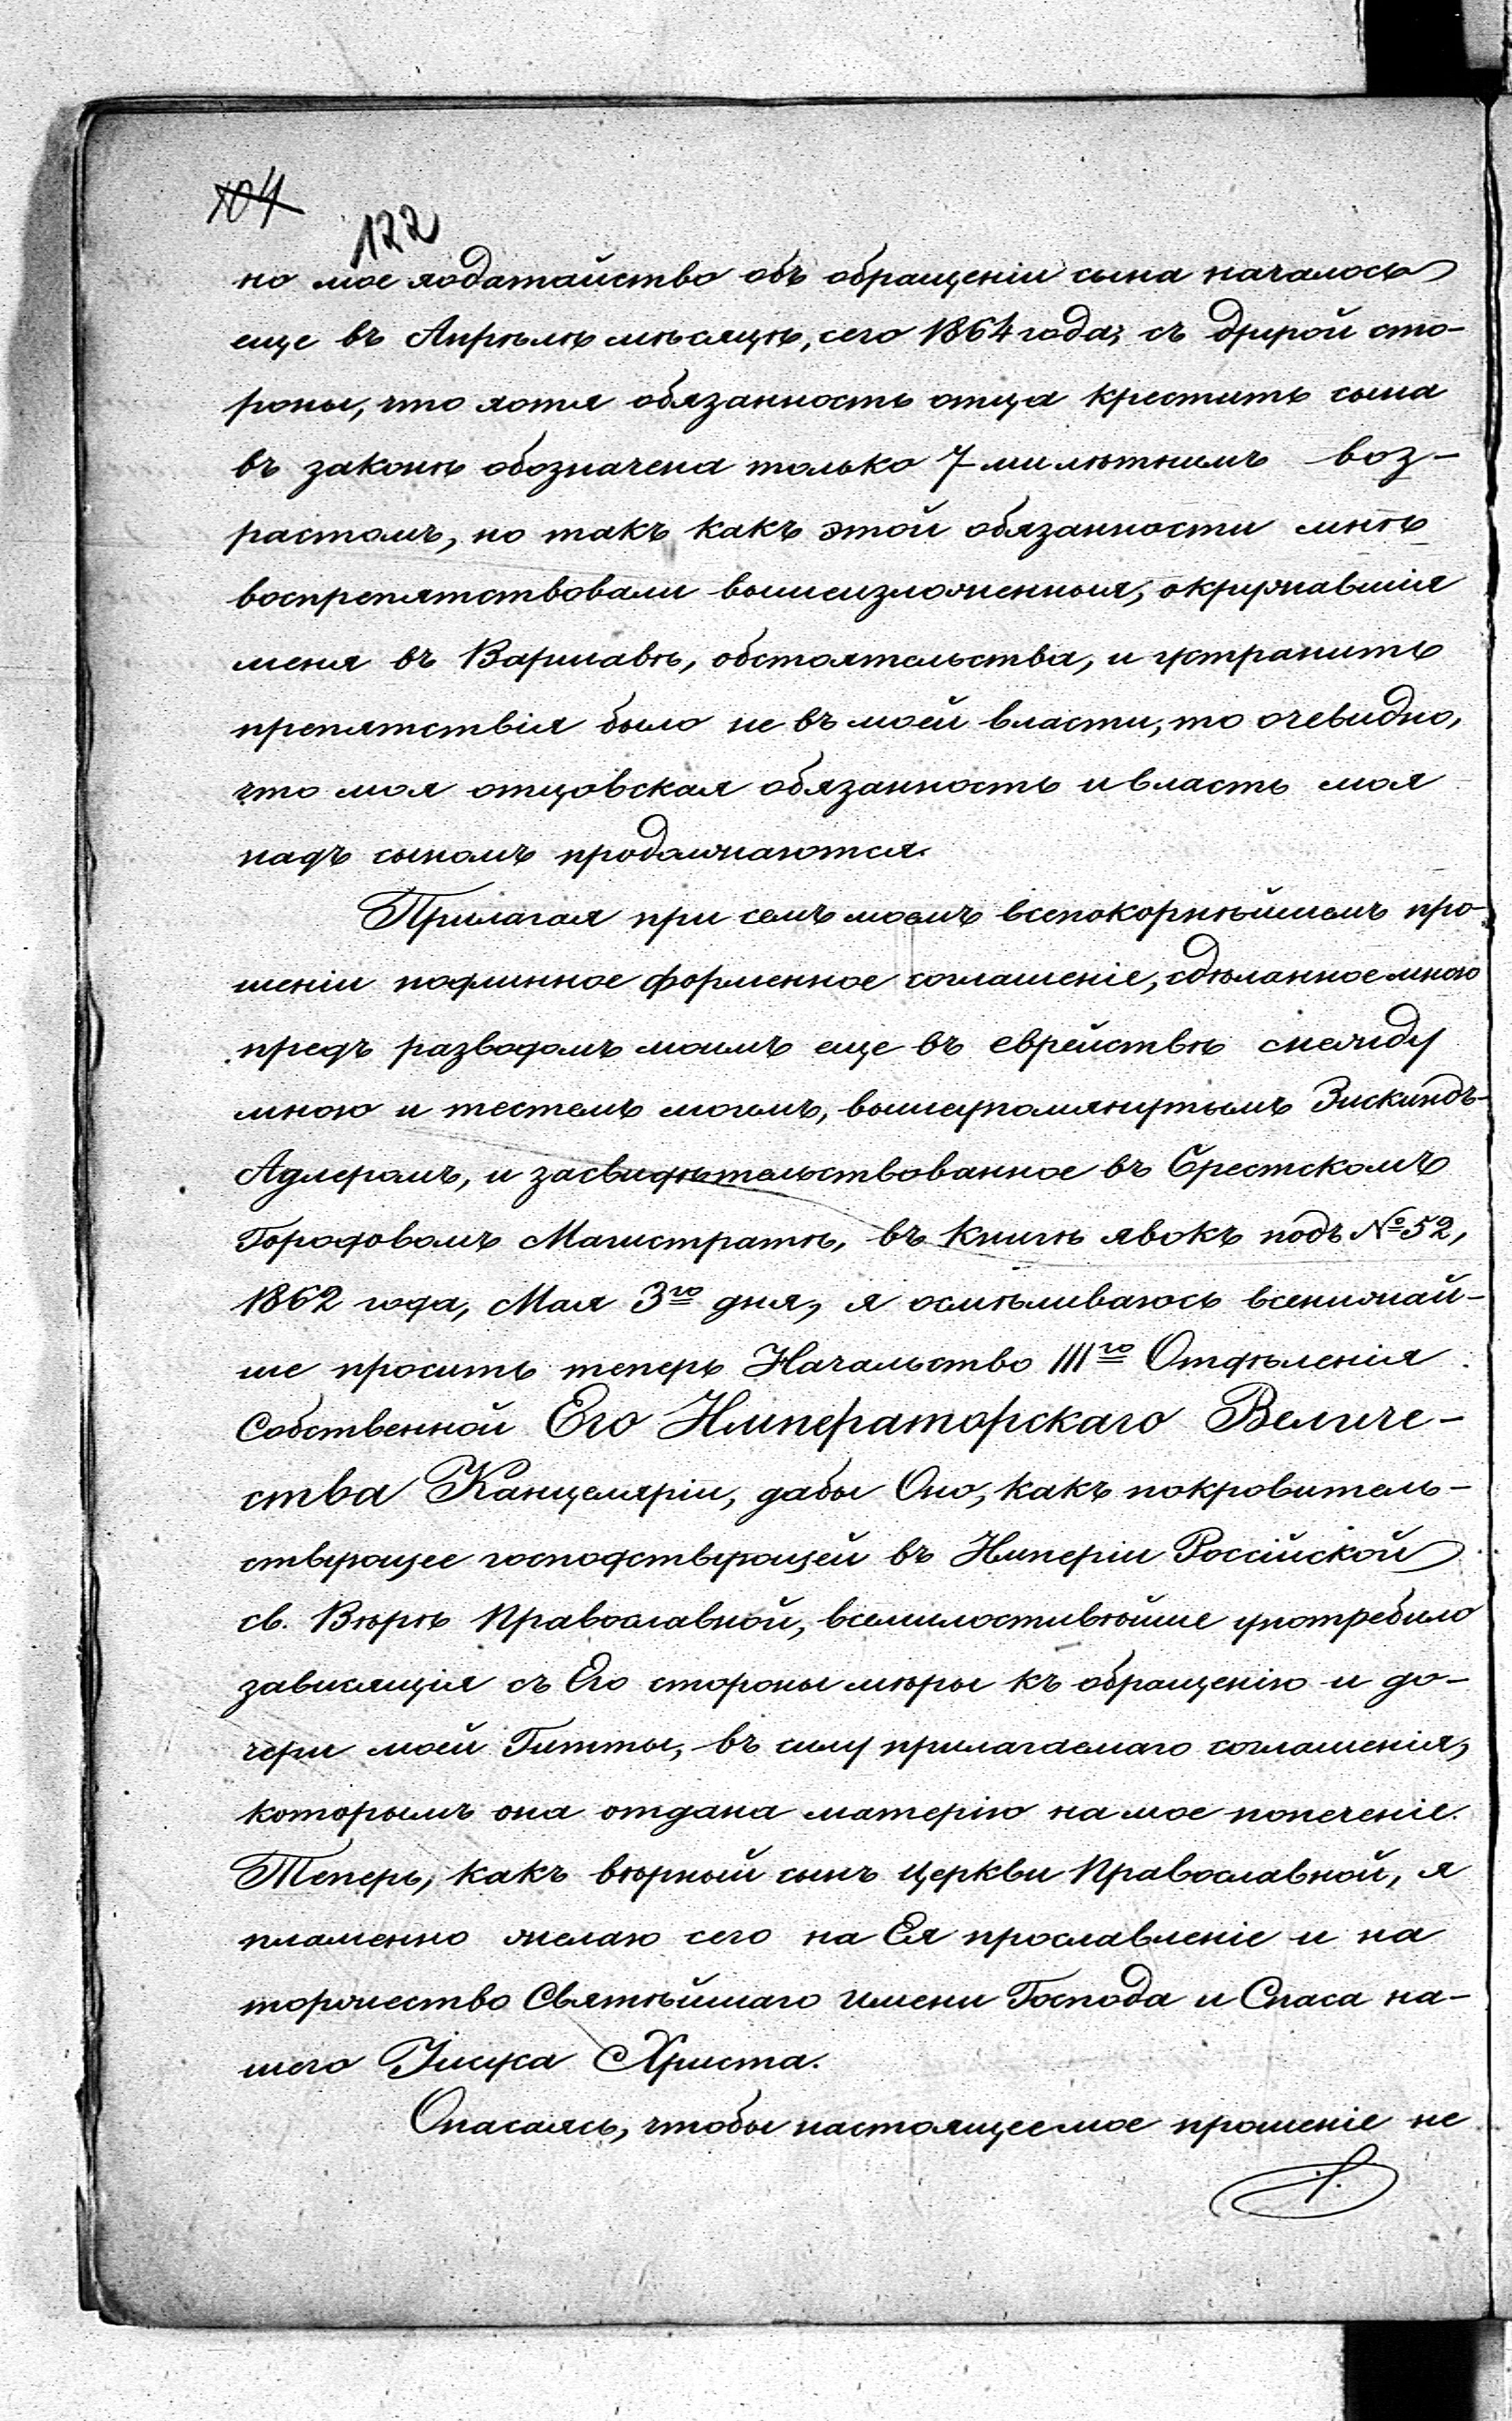 104
122
но мое ходатайство объ обращеніи сына началось
еще въ Апрѣлѣ мѣсяцѣ, сего 1864 года; съ другой сто-
роны, что хотя обязанность отца крестить сына
въ законѣ обозначена только 7-ми лѣтнимъ воз-
растомъ, но такъ какъ этой обязанности мнѣ
воспрепятствовали вышеизложенныя, окружавшія
меня въ Варшавѣ, обстоятельства, и устранить
препятствія было не въ моей власти, то очевидно,
что моя отцовская обязанность и власть моя
надъ сыномъ продолжаются.
Прилагая при семъ моемъ всепокорнѣйшемъ про-
шеніи подлинное форменное соглашеніе, сдѣланное мною
предъ разводомъ моимъ еще въ еврействѣ между
мною и тестемъ моимъ, вышеупомянутымъ Зискиндъ-
Адлеромъ, и засвидѣтельствованное въ Брестскомъ
Городовомъ Магистратѣ, въ книгѣ явокъ подъ № 52,
1862 года, Мая 3го дня, я осмѣливаюсь всенижай-
ше просить теперь Начальство IIIго Отдѣленія
Собственной Его Императорскаго Величе-
ства Канцеляріи, дабы Оно, какъ покровитель-
ствующее господствующей въ Имперіи Россійской
св. Вѣрѣ Православной, всемилостивѣйше употребило
зависящія съ Его стороны мѣры къ обращенію и до-
чери моей Гитты, въ силу прилагаемаго соглашенія,
которымъ она отдана матерію на мое попеченіе.
Теперь, какъ вѣрный сынъ Церкви Православной, я
пламенно желаю сего на Ея прославленіе и на
торжество Святѣйшаго имени Господа и Спаса на-
шего Іисуса Христа.
Опасаясь, чтобы настоящее мое прошеніе не